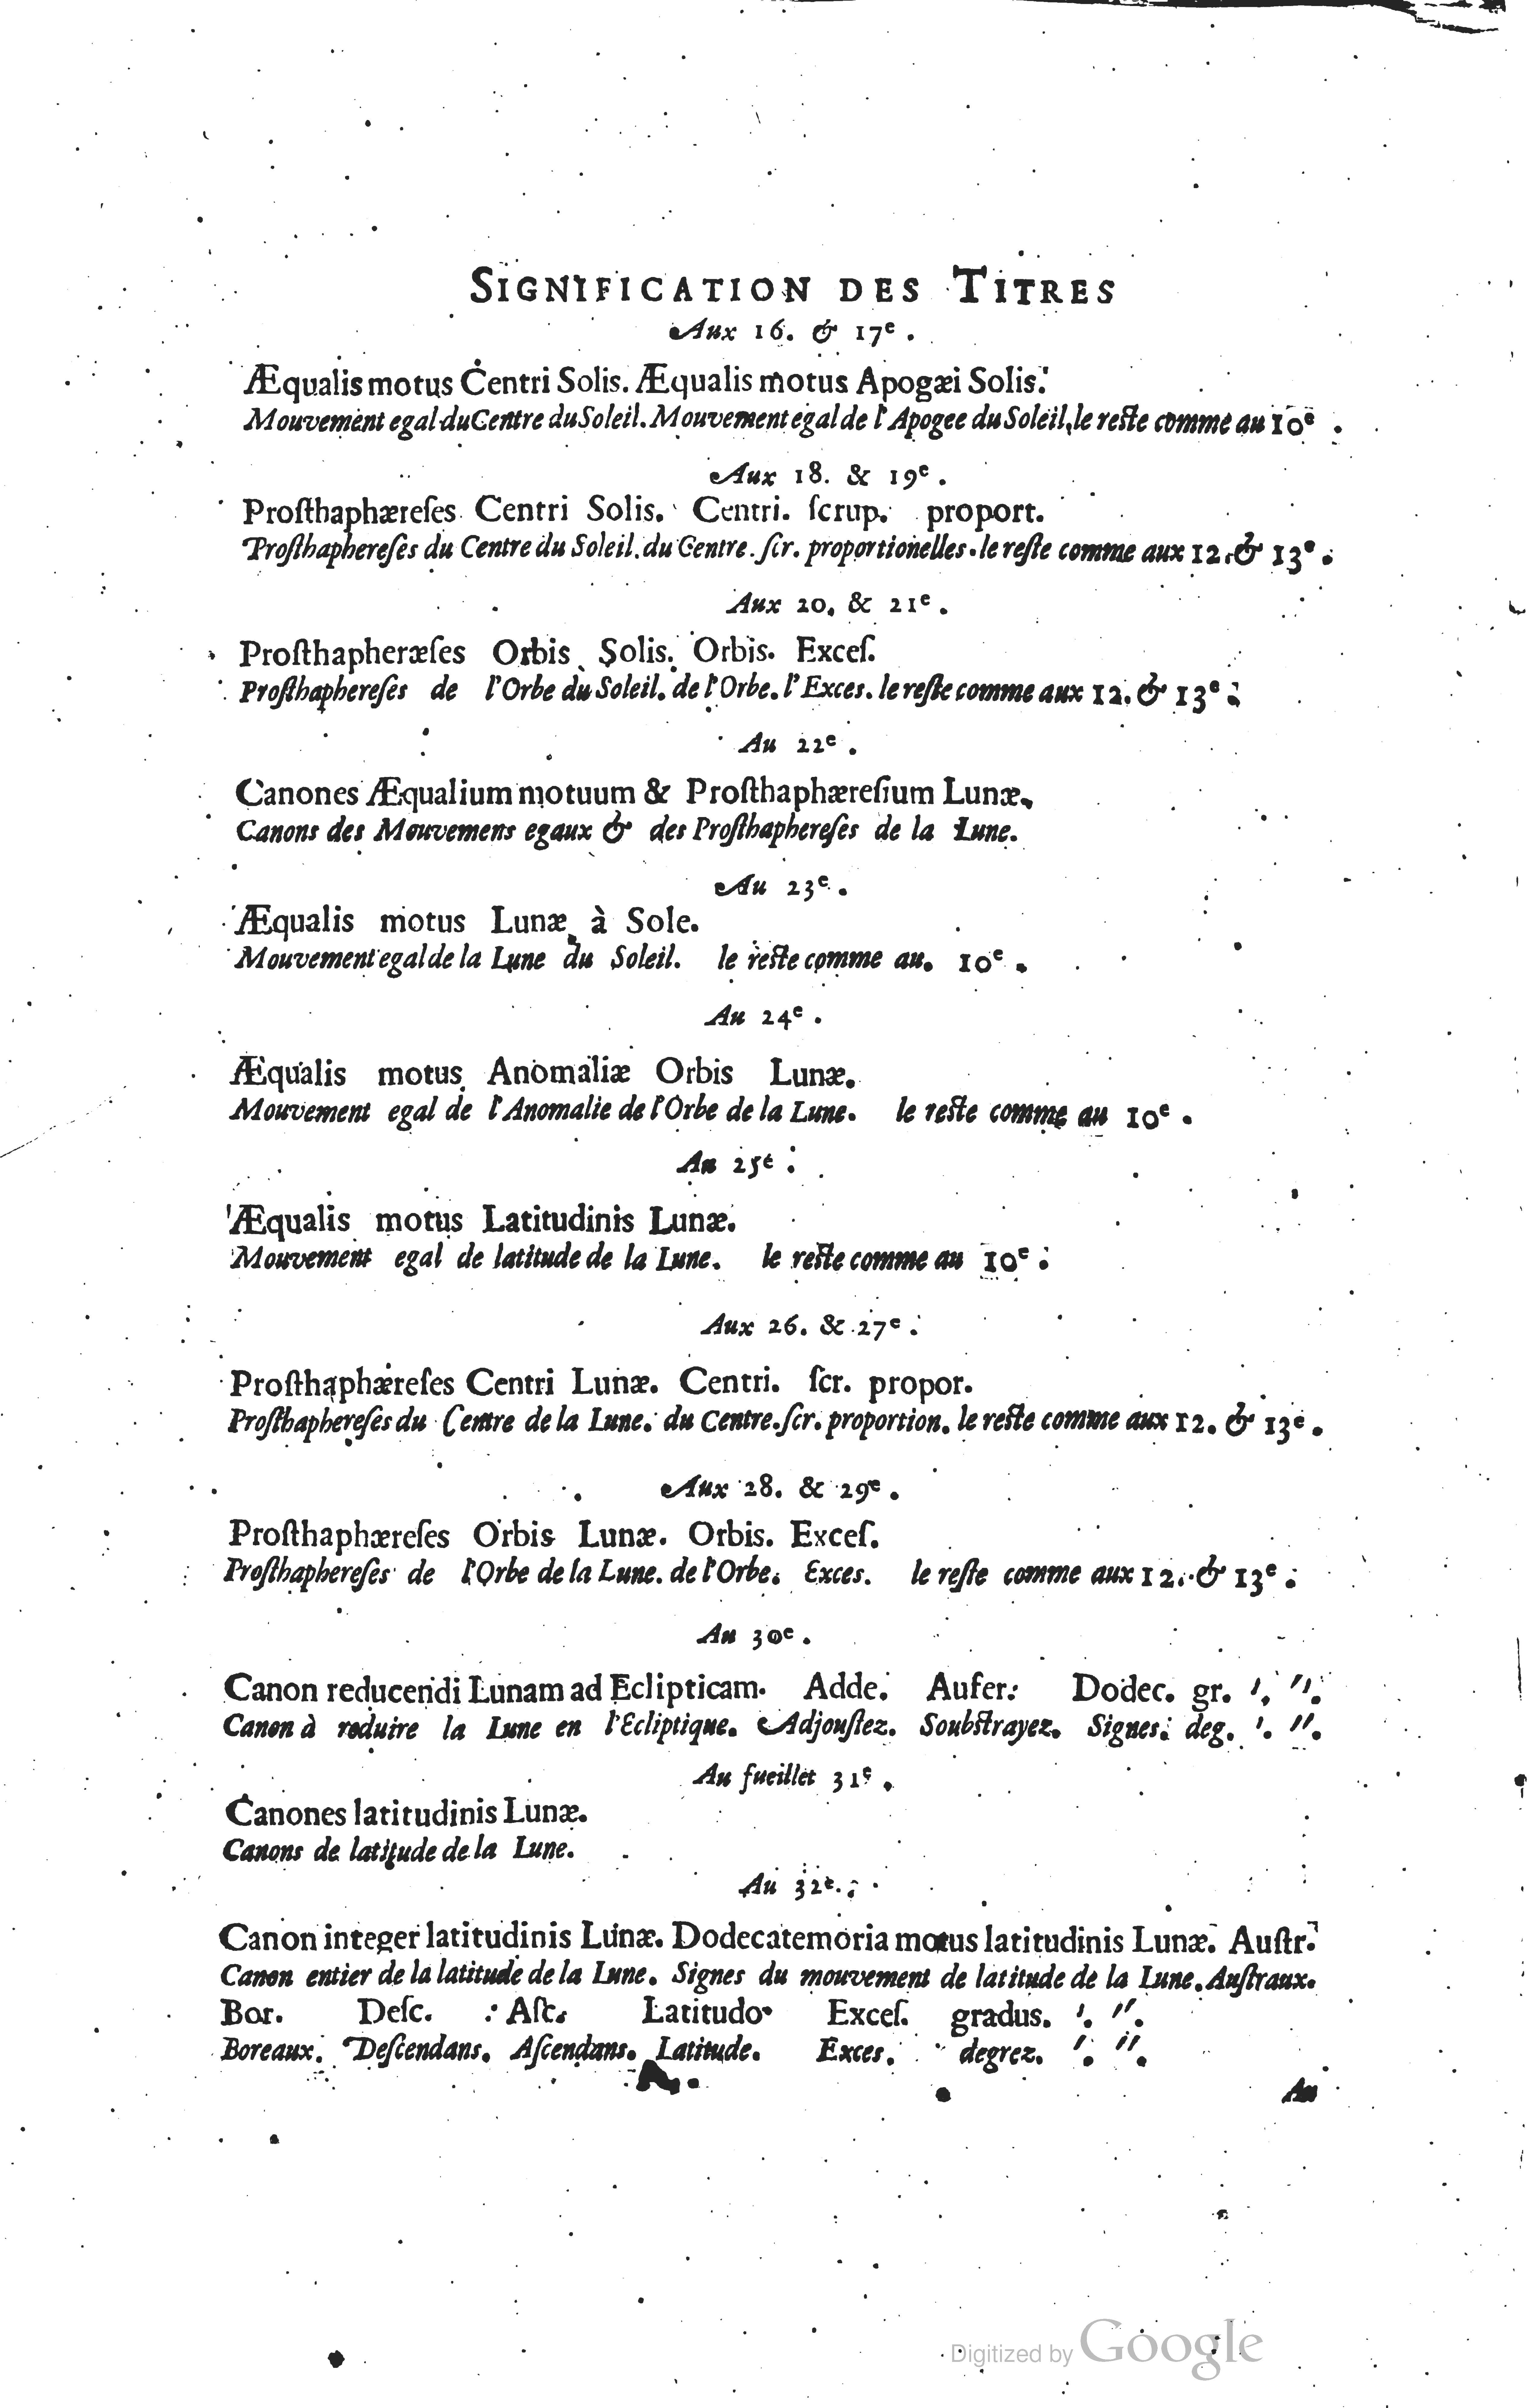 SIGNIFICATION DES TITRES
Aux 16. & 17e.
Æqualis motus Centri Solis. Æqualis motus Apogæi Solis.
Mouvement egal du Centre du Soleil. Mouvement egal de l'Apogee du Soleil, le reste comme au 10e.
Aux 18. & 19e.
Prosthaphæreſes Centri Solis. Centri. ſcrup. proport.
Proſthaphereſes du Centre du Soleil. du Centre. ſcr. proportionelles. le reſte comme aux 12. & 13e.
Aux 20. & 21e.
Proſthapheræſes Orbis Solis. Orbis. Exceſ.
Proſthaphereſes de l'Orbe du Soleil. de l'Orbe. l'Exces. le reſte comme aux 12. & 13e.
Au 22e.
Canones Æqualium motuum & Proſthaphæreſium Lunæ.
Canons des Mouvemens egaux & des Proſthaphereſes de la Lune.
Au 23e.
Æqualis motus Lunæ à Sole.
Mouvement egal de la Lune du Soleil. le reſte comme au. 10e.
Au 24e.
Æqualis motus Anomaliæ Orbis Lunæ.
Mouvement egal de l'Anomalie de l'Orbe de la Lune. le reſte comme au 10e.
Au 25e.
Æqualis motus Latitudinis Lunæ.
Mouvement egal de latitude de la Lune. le reſte comme au 10e.
Aux 26. & 27e.
Proſthaphæreſes Centri Lunæ. Centri. ſcr. propor.
Proſthaphereſes du Centre de la Lune. du Centre. ſcr. proportion. le reſte comme aux 12. & 13e.
Aux 28. & 29e.
Proſthaphæreſes Orbis Lunæ. Orbis. Exceſ.
Proſthaphereſes de l'Orbe de la Lune. de l'Orbe. Exces. le reſte comme aux 12. & 13e.
Au 30e.
Canon reducendi Lunam ad Eclipticam. Adde. Aufer. Dodec. gr. '. ''.
Canon à reduire la Lune en l'Ecliptique. Adjouſtez. Soubſtrayez. Signes. deg. '. ''.
Au fueillet 31e.
Canones latitudinis Lunæ.
Canons de latitude de la Lune.
Au 32e.
Canon integer latitudinis Lunæ. Dodecatemoria motus latitudinis Lunæ. Auſtr.
Canon entier de la latitude de la Lune. Signes du mouvement de latitude de la Lune. Auſtraux.
Bor. Deſc. Aſc. Latitudo. Exceſ. gradus. '. ''.
Boreaux. Deſcendans. Aſcendans. Latitude. Exces. degrez. '. ''.
Au
Digitized by Google